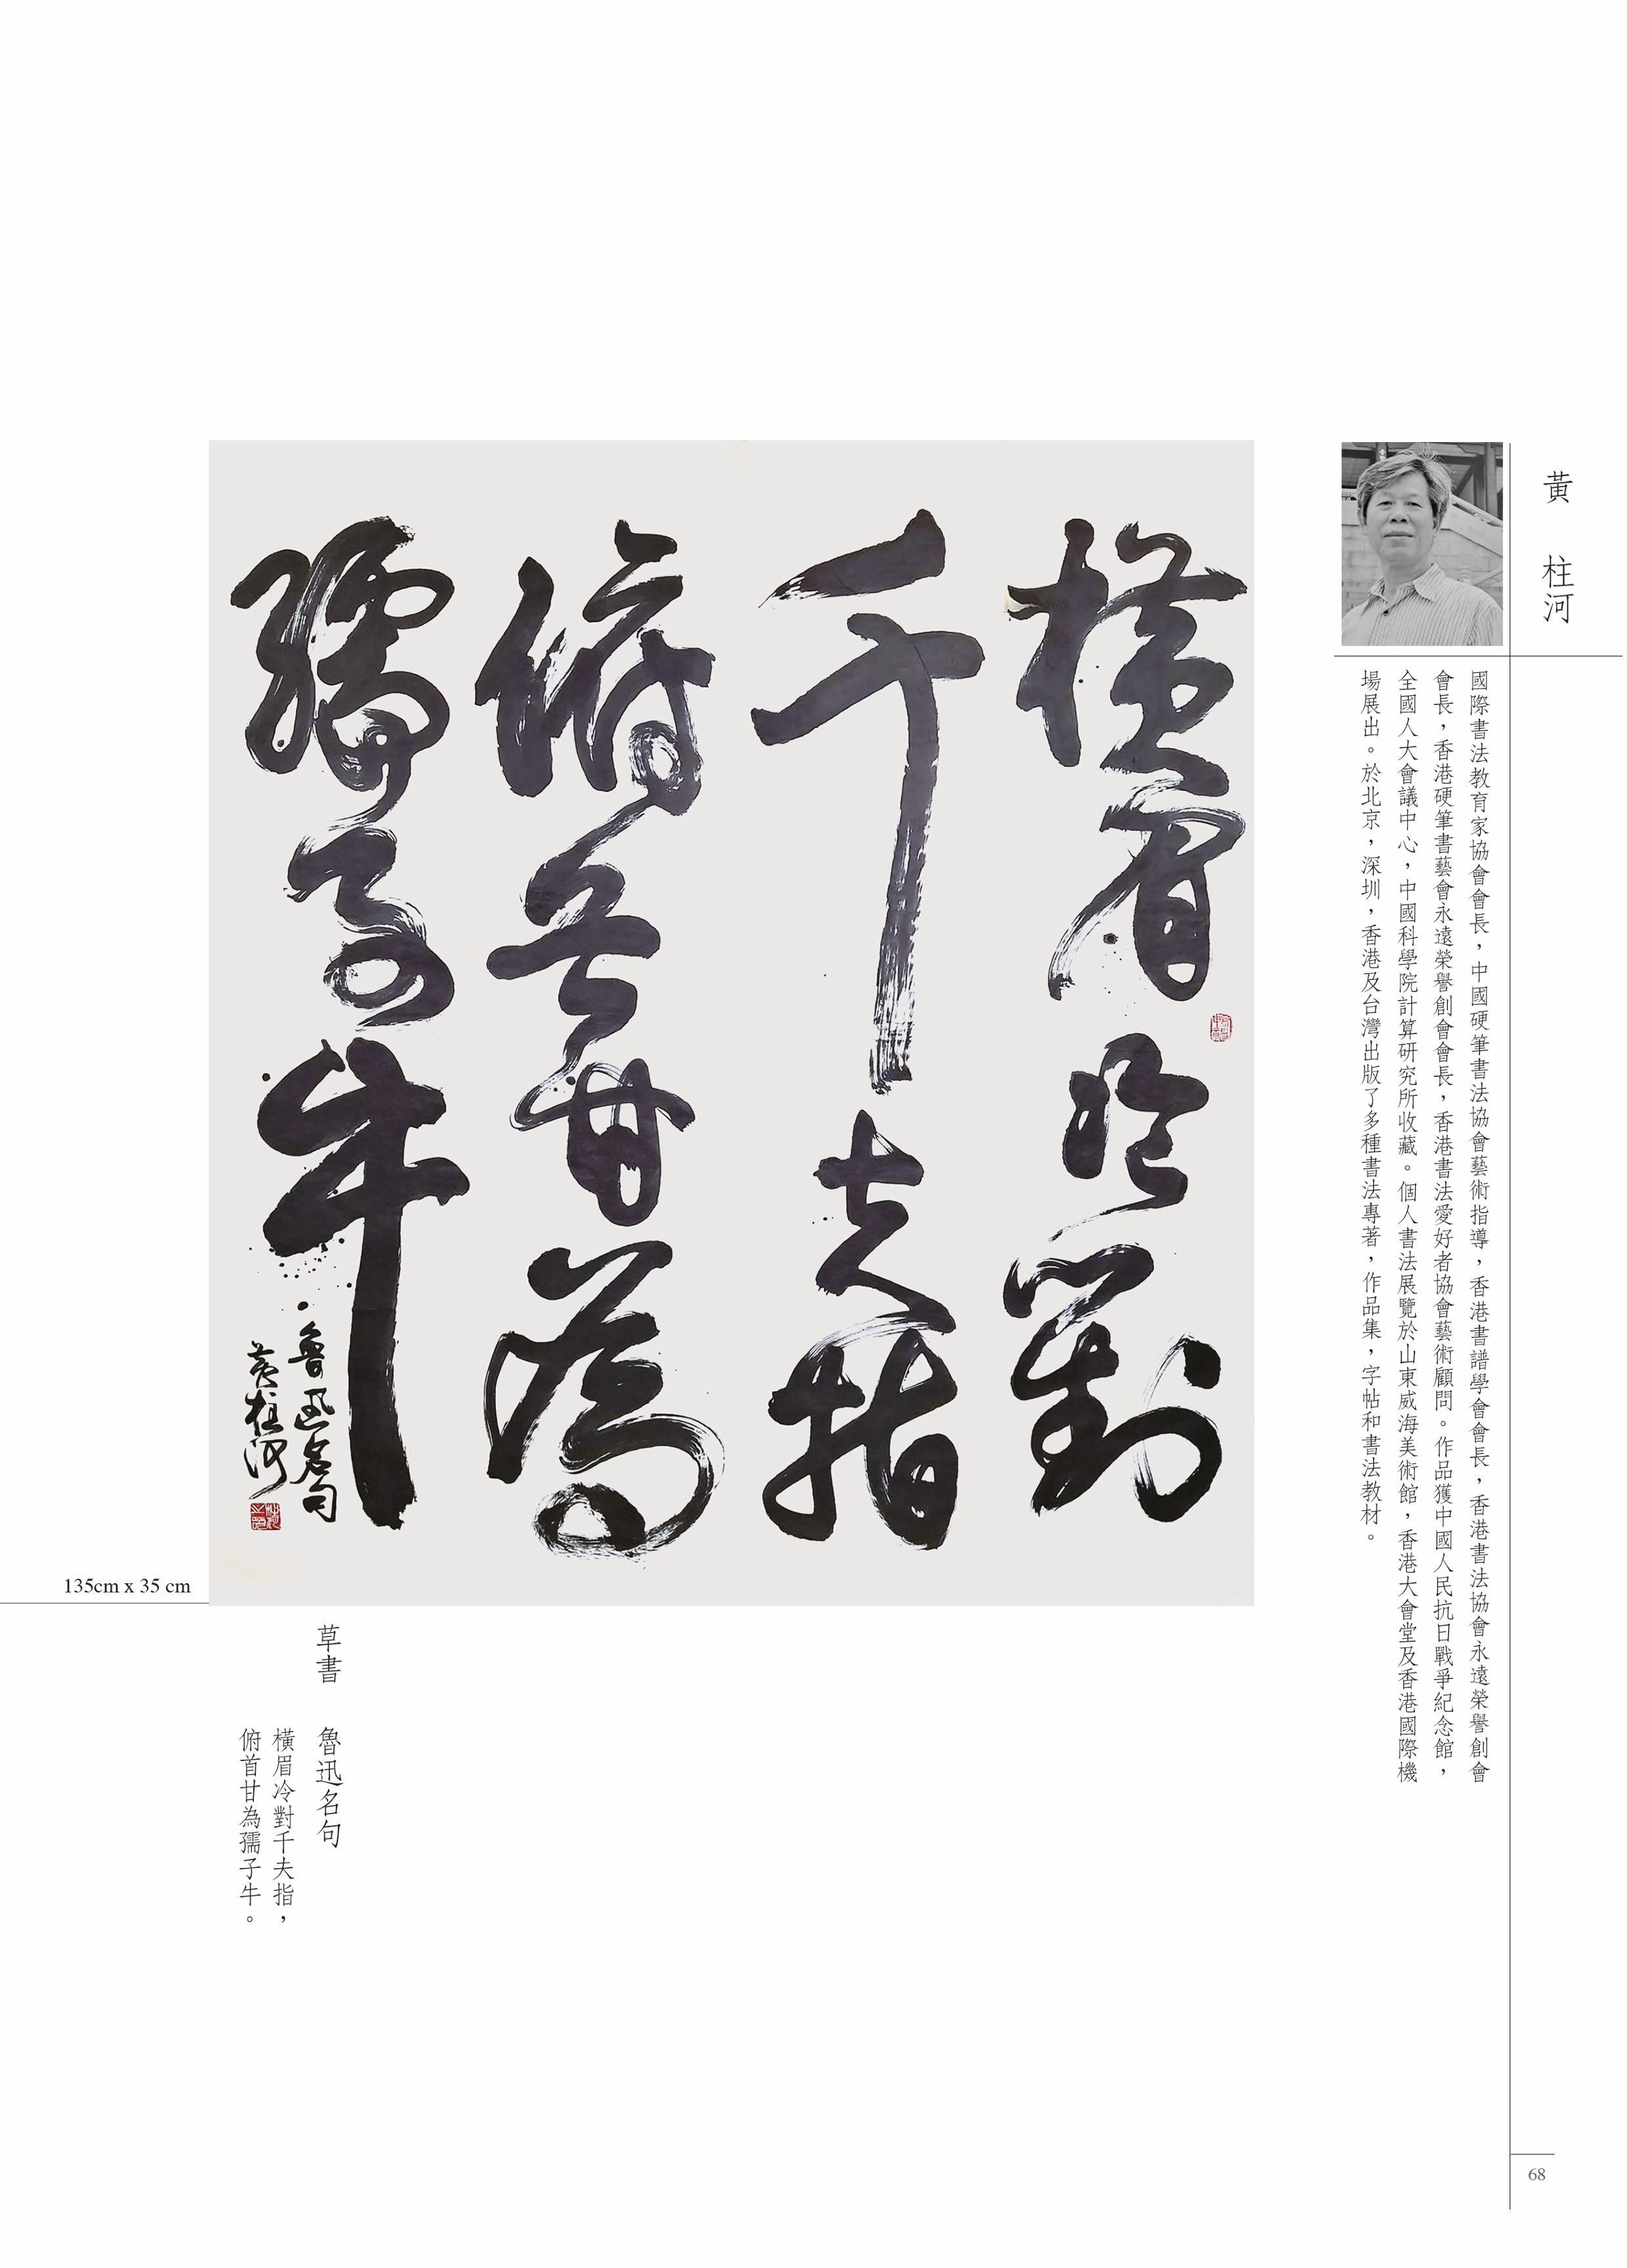 黃 柱河
國際書法教育家協會會長，中國硬筆書法協會藝術指導，香港書譜學會會長，香港書法協會永遠榮譽創會
會長，香港硬筆書藝會永遠榮譽創會會長，香港書法愛好者協會藝術顧問。作品獲中國人民抗日戰爭紀念館，
全國人大會議中心，中國科學院計算研究所收藏。個人書法展覽於山東威海美術館，香港大會堂及香港國際機
場展出。於北京，深圳，香港及台灣出版了多種書法專著，作品集，字帖和書法教材。
橫眉冷對
千夫指
俯首甘為
孺子牛
魯迅名句
黃柱河
135cm x 35 cm
草書 魯迅名句
橫眉冷對千夫指，
俯首甘為孺子牛。
68